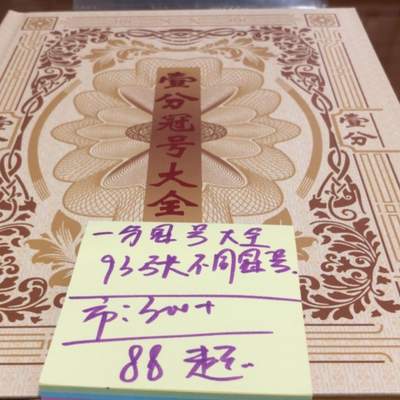 壹分冠号大全
壹分
壹分
一分冠号大全
935张不同冠号.
市:300+
88起.